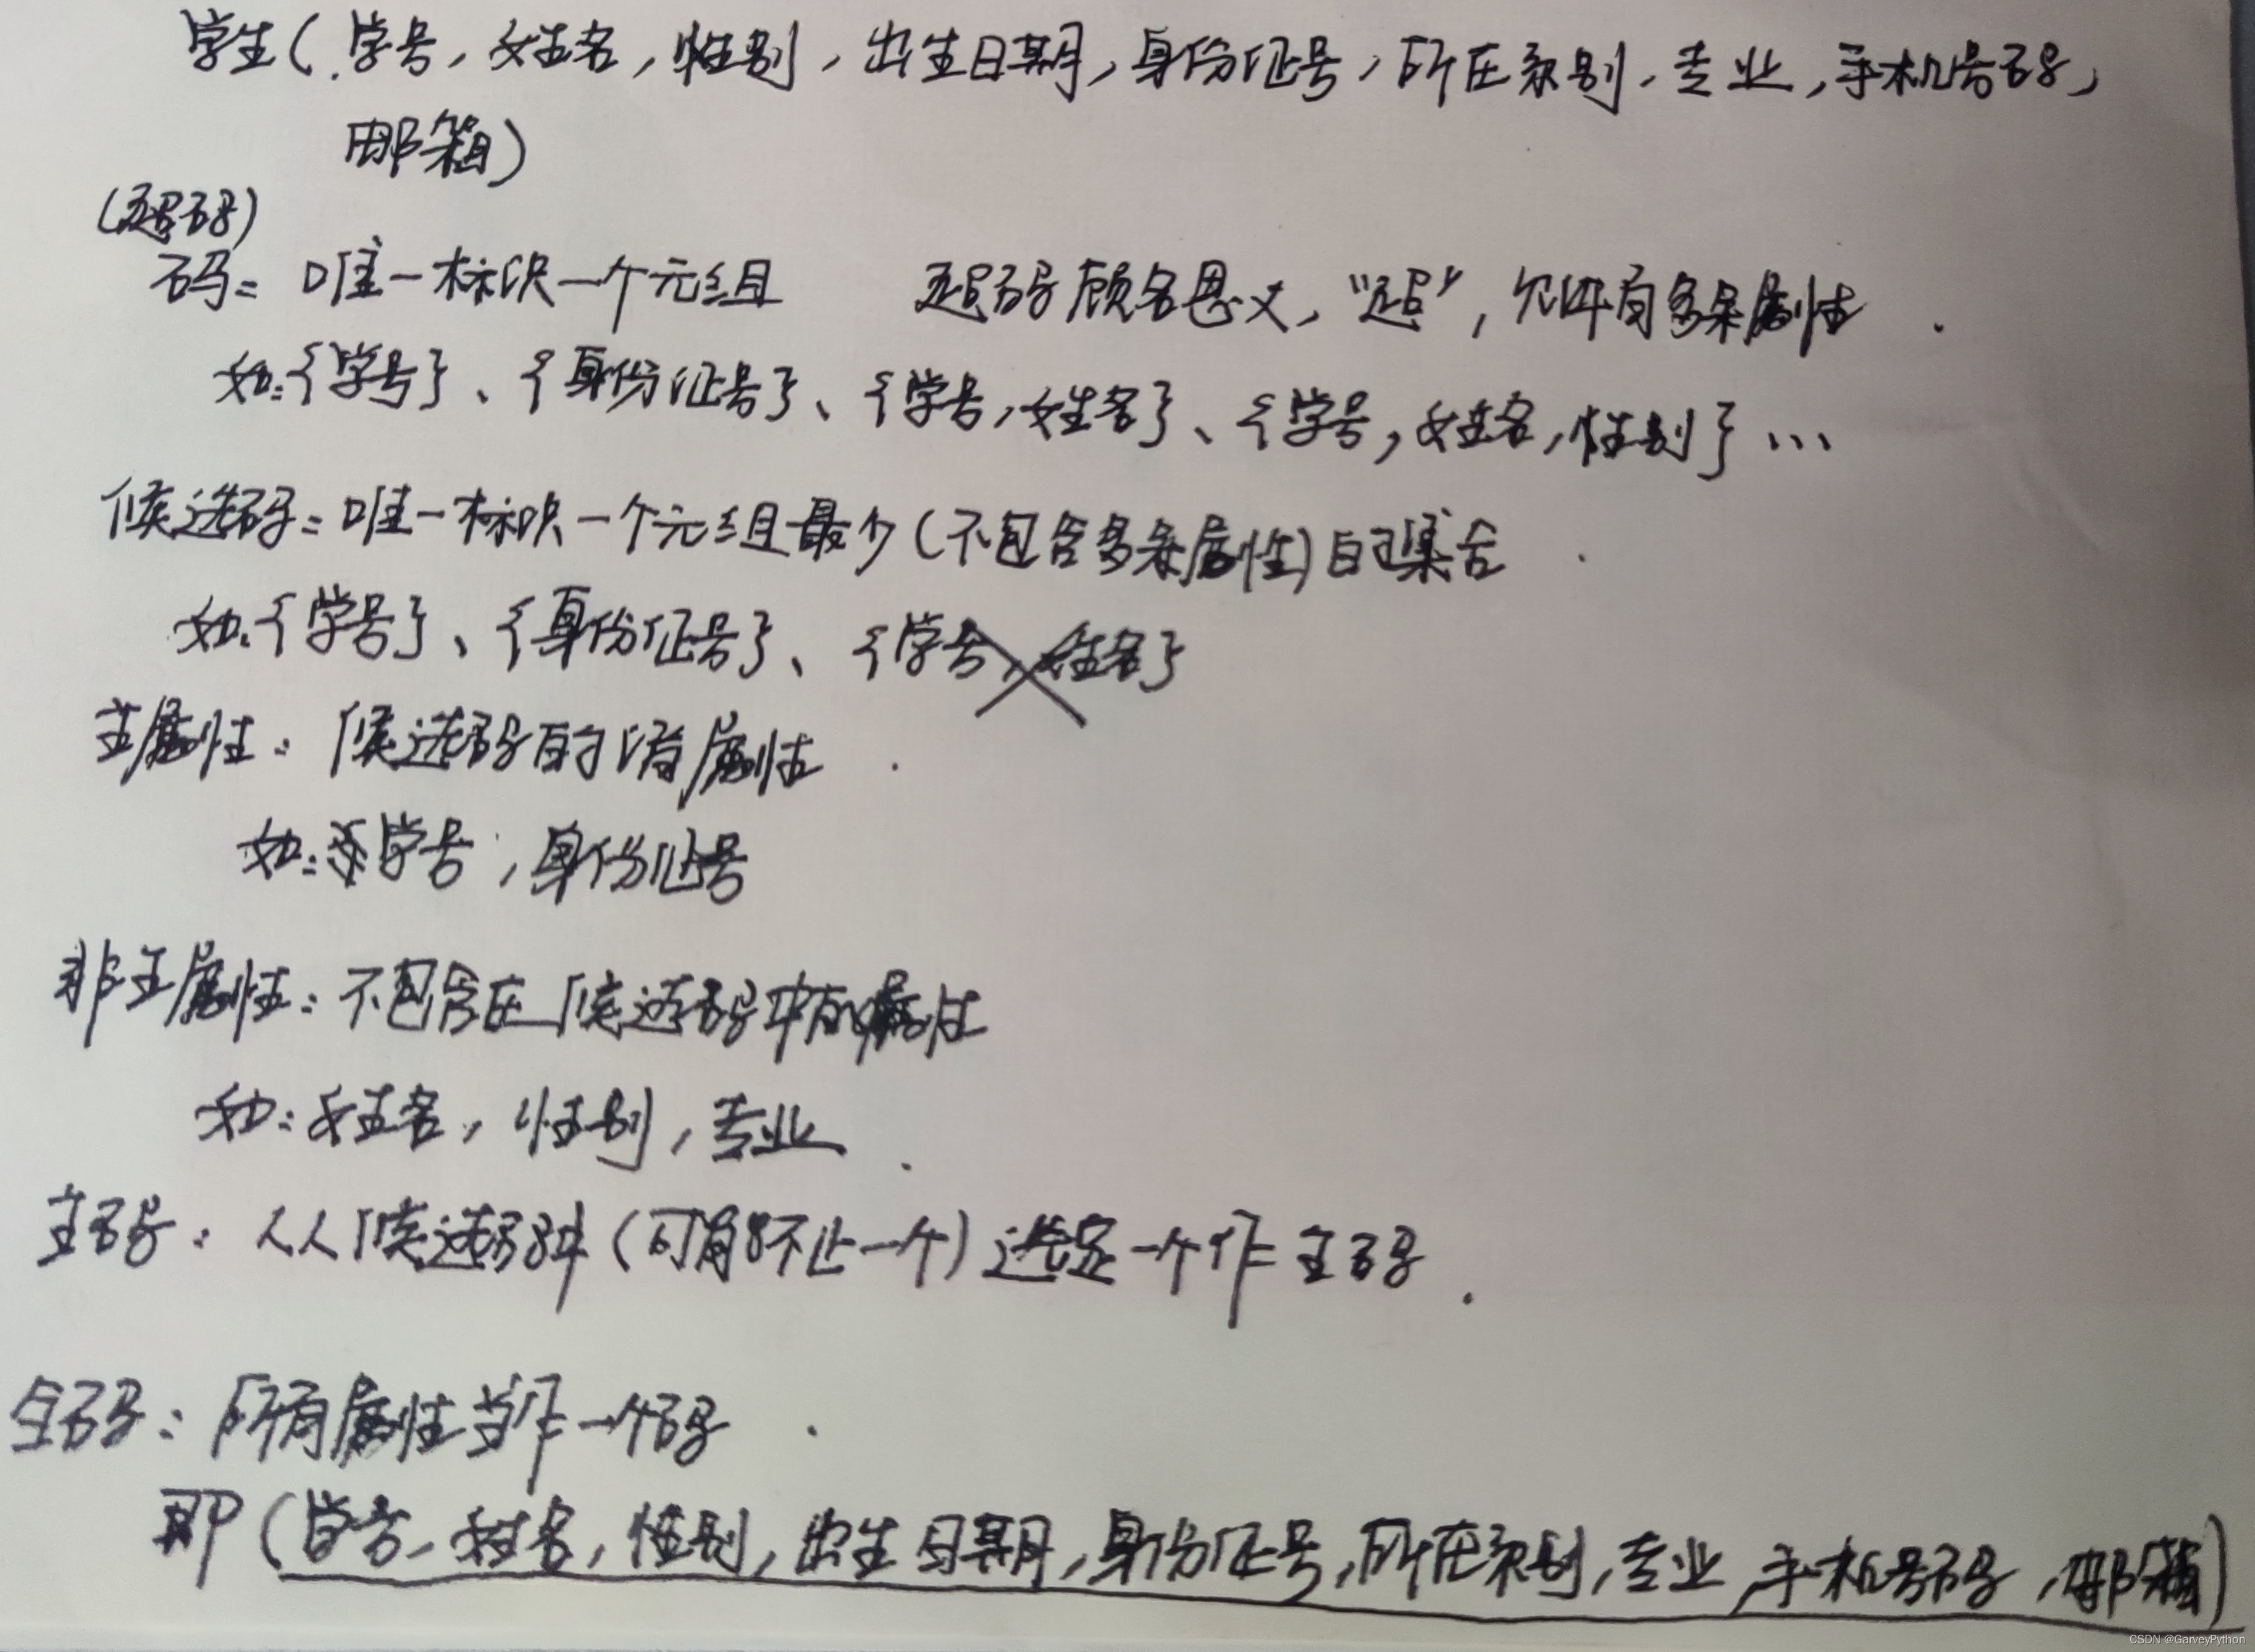 学生(学号,姓名,性别,出生日期,身份证号,所在系别,专业,手机号码,
邮箱)
(超码)
码: 唯一标识一个元组 超码顾名思义,“超”,允许有多余属性.
如:{学号}、{身份证号}、{学号,姓名}、{学号,姓名,性别}...
候选码:唯一标识一个元组最少(不包含多余属性)的集合.
如:{学号}、{身份证号}、{学号,姓名}
主属性:候选码的诸属性.
如:学号,身份证号
非主属性:不包含在候选码中的属性
如:姓名,性别,专业.
主码:从候选码中(可有不止一个)选定一个作主码.
全码:所有属性当作一个码.
即(学号,姓名,性别,出生日期,身份证号,所在系别,专业,手机号码,邮箱)
CSDN @GarveyPython